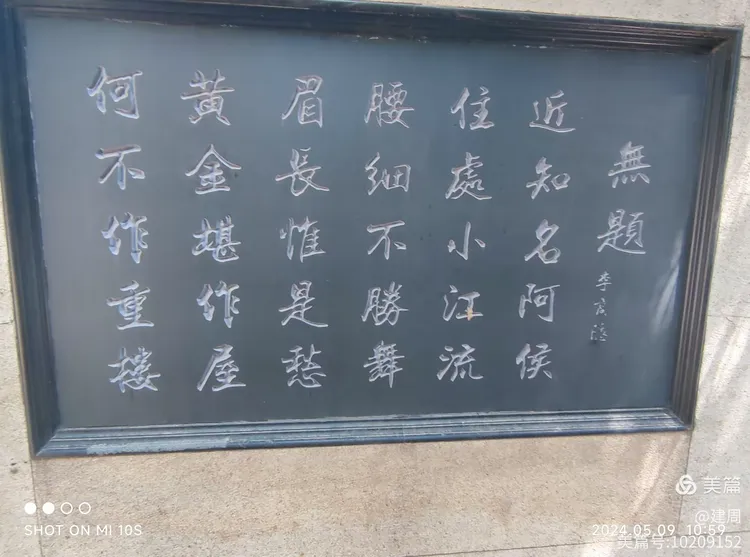 無題
李商隱
近知名阿侯
住處小江流
腰細不勝舞
眉長惟是愁
黃金堪作屋
何不作重樓
SHOT ON MI 10S
美篇
@建周
2024.05.09 10:59
美篇号:10209152